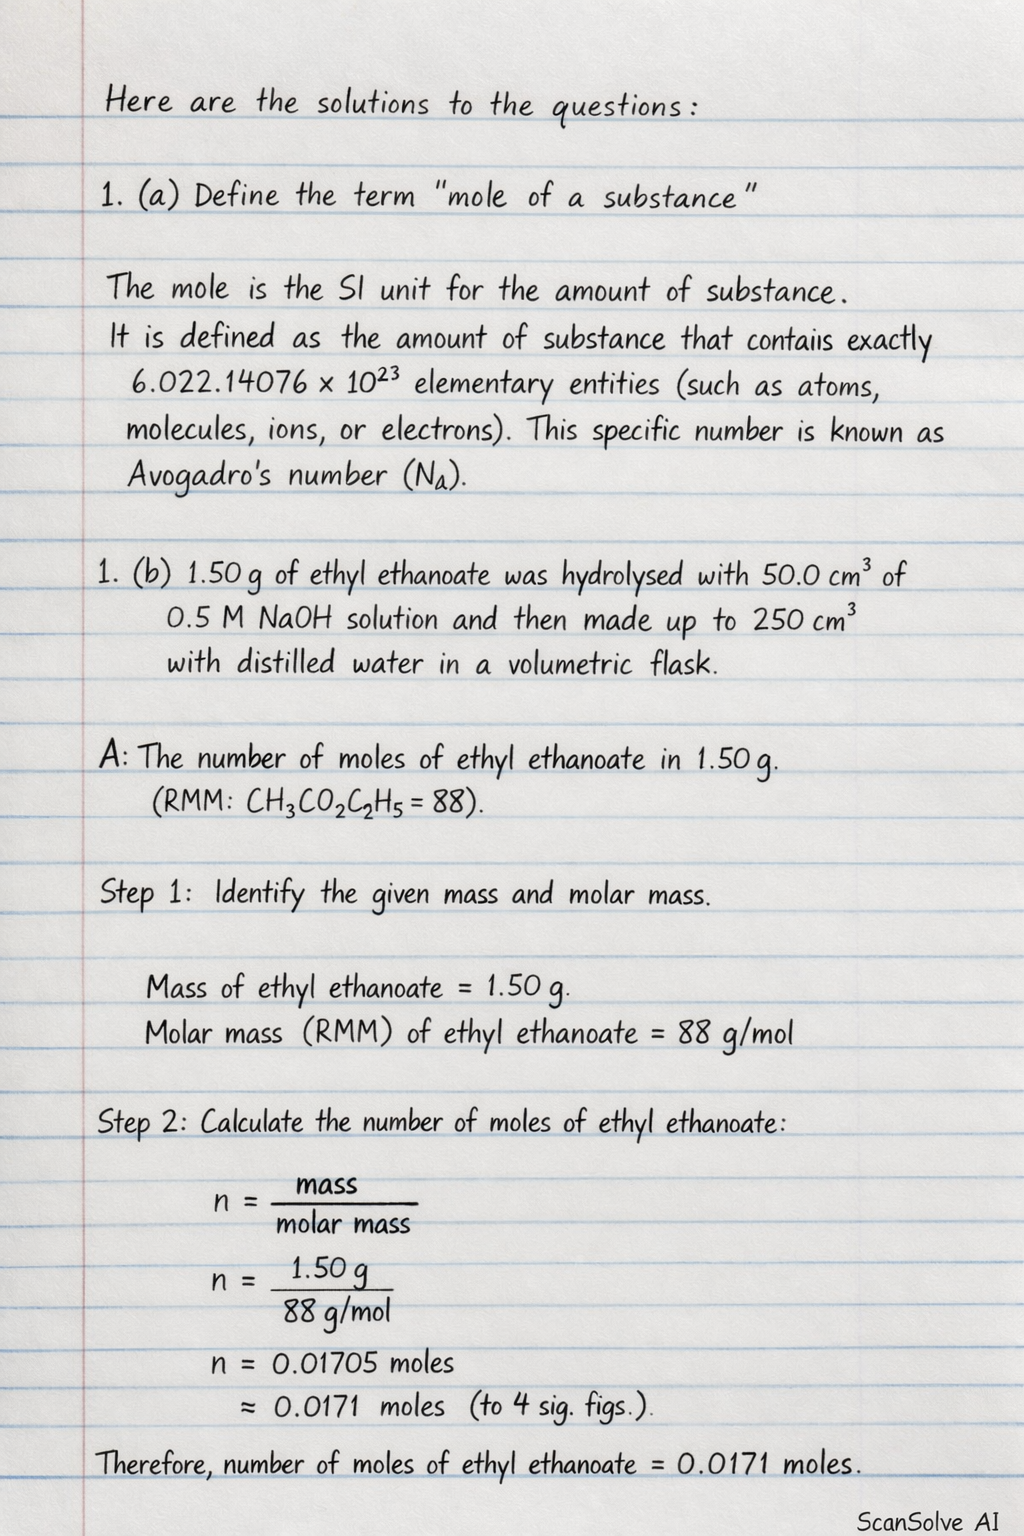 Here are the solutions to the questions:
1. (a) Define the term "mole of a substance"
The mole is the SI unit for the amount of substance.
It is defined as the amount of substance that contaiis exactly
6.022.14076 × 10²³ elementary entities (such as atoms,
molecules, ions, or electrons). This specific number is known as
Avogadro's number (Nₐ).
1. (b) 1.50 g of ethyl ethanoate was hydrolysed with 50.0 cm³ of
0.5 M NaOH solution and then made up to 250 cm³
with distilled water in a volumetric flask.
A: The number of moles of ethyl ethanoate in 1.50 g.
(RMM: CH₃CO₂C₂H₅ = 88).
Step 1: Identify the given mass and molar mass.
Mass of ethyl ethanoate = 1.50 g.
Molar mass (RMM) of ethyl ethanoate = 88 g/mol
Step 2: Calculate the number of moles of ethyl ethanoate:
n = mass
molar mass
n = 1.50 g
88 g/mol
n = 0.01705 moles
≈ 0.0171 moles (to 4 sig. figs.).
Therefore, number of moles of ethyl ethanoate = 0.0171 moles.
ScanSolve AI